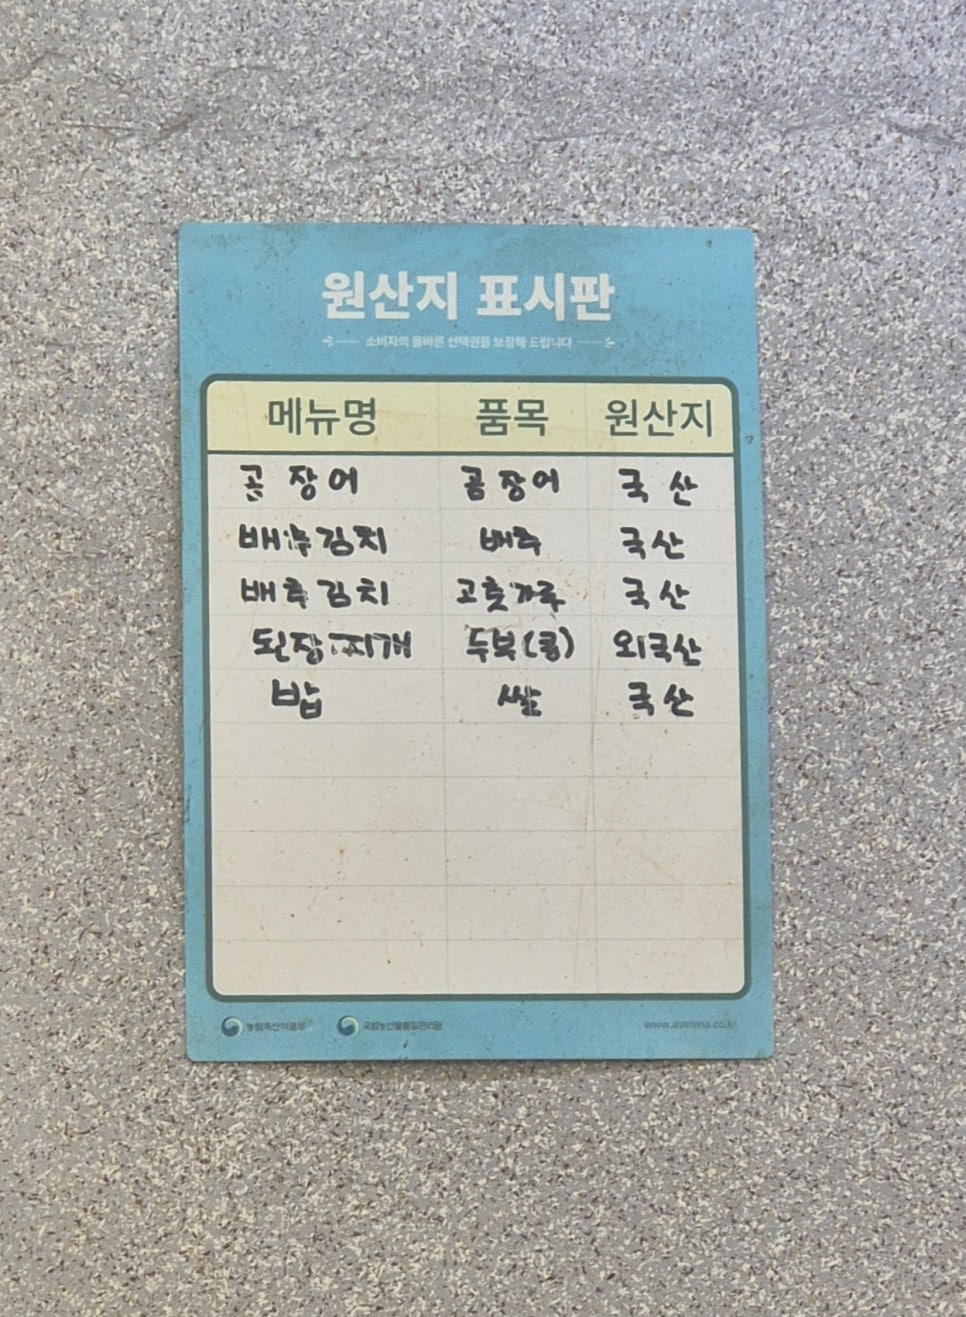 원산지 표시판
소비자의 올바른 선택권을 보장해 드립니다
메뉴명 품목 원산지
곰장어 곰장어 국산
배추김치 배추 국산
배추김치 고춧가루 국산
된장찌개 두부(콩) 외국산
밥 쌀 국산
농림축산식품부 국립농산물품질관리원